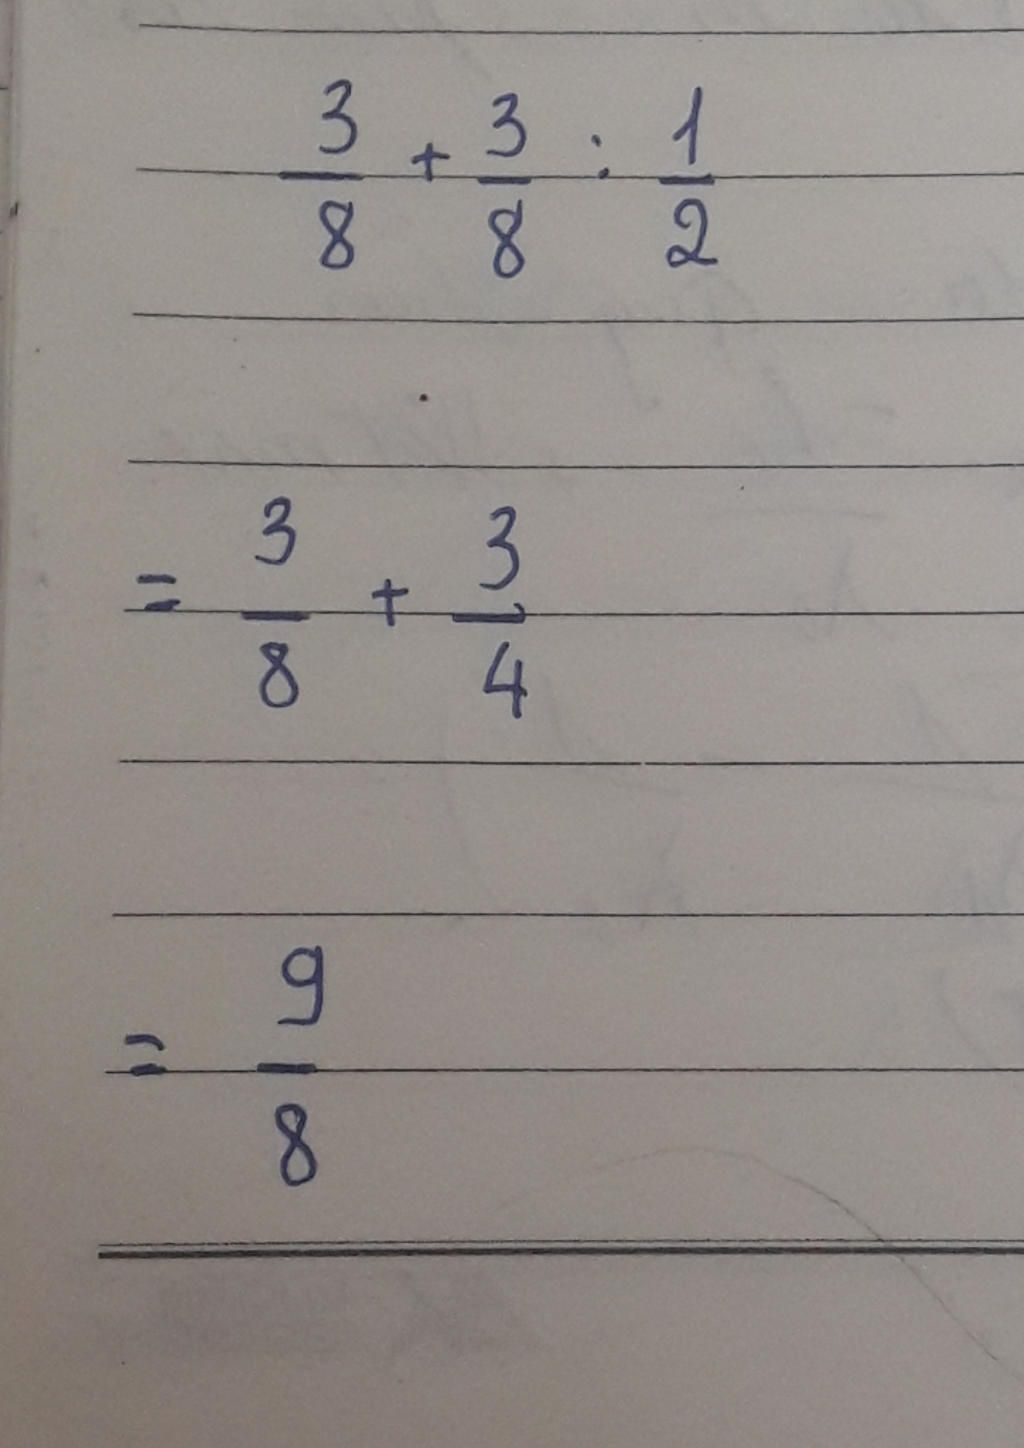 3/8 + 3/8 : 1/2
= 3/8 + 3/4
= 9/8